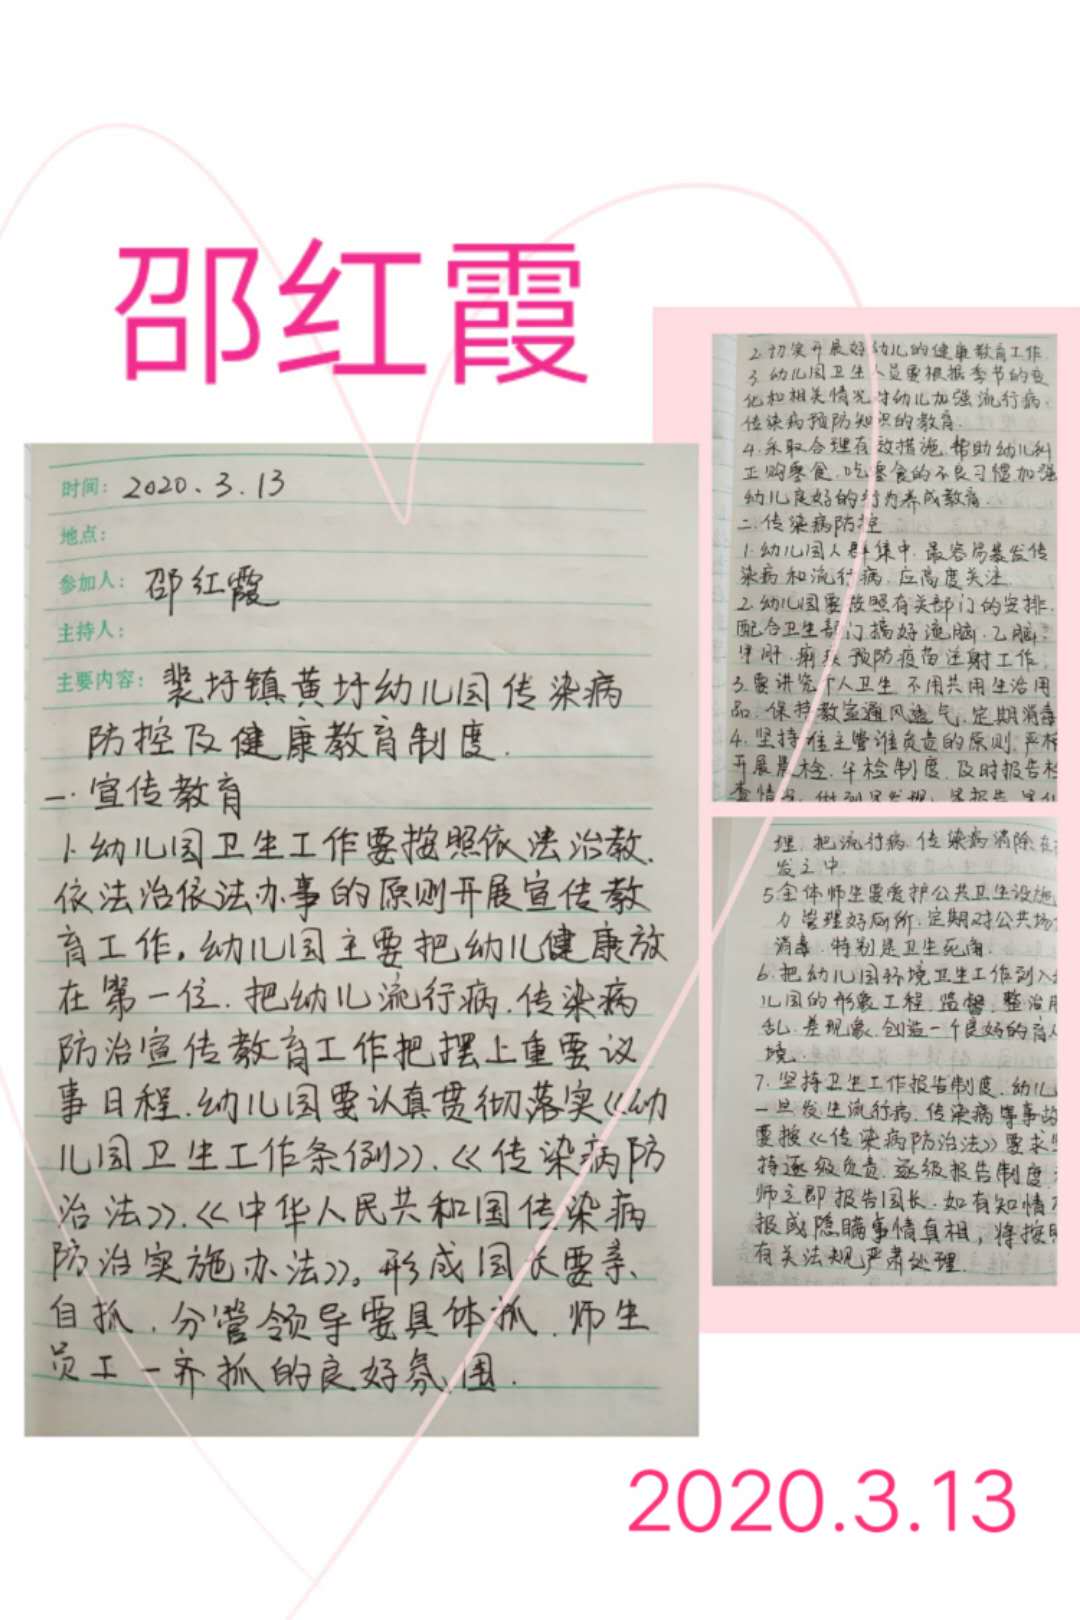 邵红霞
时间：2020.3.13
地点：
参加人：邵红霞
主持人：
主要内容：裴圩镇黄圩幼儿园传染病
防控及健康教育制度.
一.宣传教育
1.幼儿园卫生工作要按照依法治教.
依法治依法办事的原则开展宣传教
育工作。幼儿园主要把幼儿健康放
在第一位.把幼儿流行病.传染病
防治宣传教育工作把摆上重要议
事日程.幼儿园要认真贯彻落实《幼
儿园卫生工作条例》.《传染病防
治法》.《中华人民共和国传染病
防治实施办法》。形成园长要亲
自抓.分管领导要具体抓.师生
员工一齐抓的良好氛围.
2.切实开展好幼儿的健康教育工作.
3.幼儿园卫生人员要根据季节的变
化和相关情况对幼儿加强流行病.
传染病预防知识的教育.
4.采取合理有效措施.帮助幼儿纠
正购零食.吃零食的不良习惯加强
幼儿良好的行为养成教育.
二.传染病防控
1.幼儿园人群集中.最容易暴发传
染病和流行病.应高度关注.
2.幼儿园要按照有关部门的安排.
配合卫生部门搞好流脑.乙脑.
甲肝.痢疾预防疫苗注射工作.
3.要讲究个人卫生.不用共用生活用
品.保持教室通风透气.定期消毒
4.坚持谁主管谁负责的原则.严格
开展晨检.午检制度.及时报告检
查情况.做到早发现.早报告.早
理.把流行病.传染病消除在
发之中.
5.全体师生要爱护公共卫生设施
力管理好厕所.定期对公共场
消毒.特别是卫生死角.
6.把幼儿园环境卫生工作列入
儿园的形象工程.监督.整治
乱.差现象.创造一个良好的育人
境.
7.坚持卫生工作报告制度.幼儿
一旦发生流行病.传染病等事故
要按《传染病防治法》要求
持逐级负责.逐级报告制度.
师立即报告园长.如有知情
报或隐瞒事情真相，将按照
有关法规严肃处理.
2020.3.13